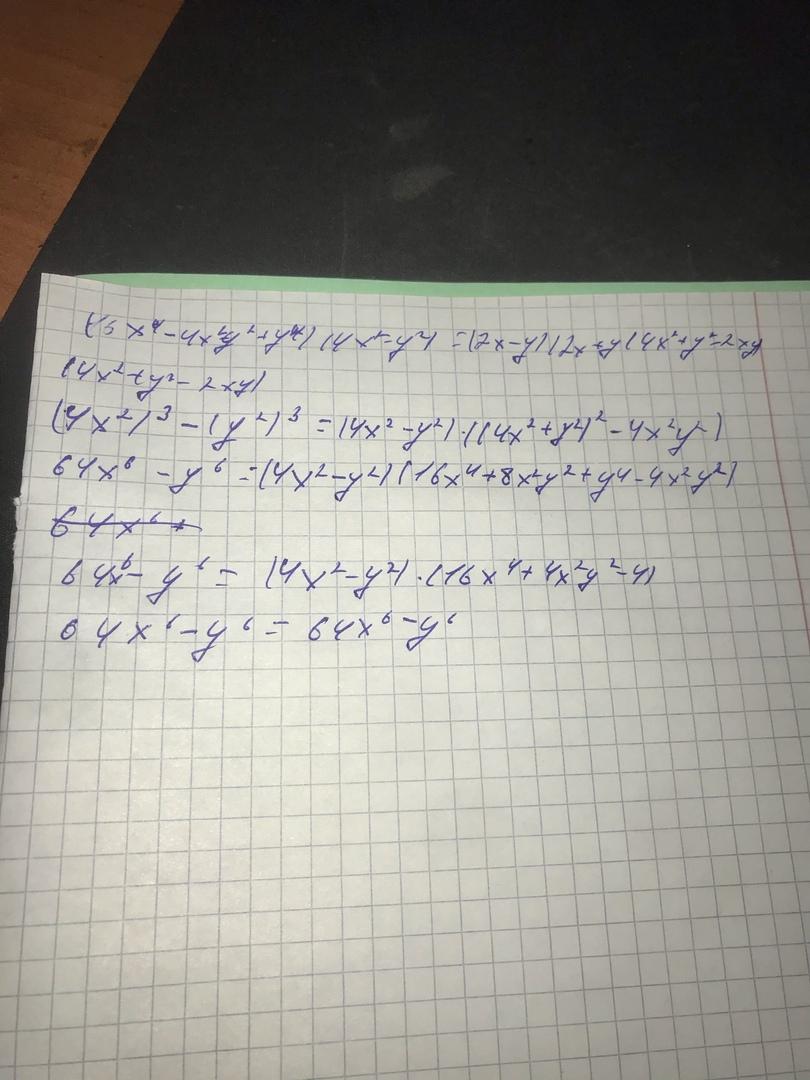 (15x⁴-4x²y²+y⁴)(4x²-y²) =(2x-y)(2x+y(4x²+y²-2xy)
(4x²+y²-2xy)
(4x²)³-(y²)³=(4x²-y²)·((4x²+y²)²-4x²y²)
64x⁶-y⁶=(4x²-y²)(16x⁴+8x²y²+y4-4x²y²)
64x⁶+
64x⁶-y⁶= (4x²-y²)·(16x⁴+4x²y²-4)
64x⁶-y⁶= 64x⁶-y⁶